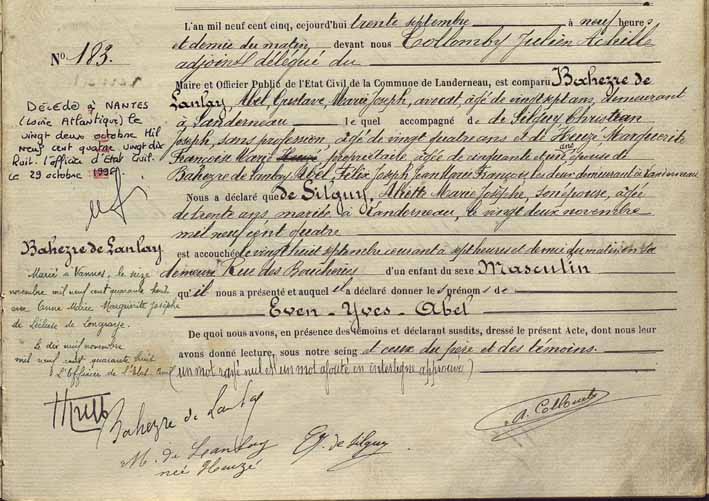 L'an mil neuf cent cinq, cejourd'hui trente septembre à neuf heures
et demie du matin, devant nous Collomby Julien Achille
adjoint délégué du
Maire et Officier Public de l'Etat Civil de la Commune de Landerneau, est comparu Bahezre de
Lanlay, Abel, Gustave, Marie Joseph, avocat, âgé de vingt sept ans, demeurant
à Landerneau lequel accompagné de de Silguy Christian
Joseph, sans profession, âgé de vingt quatre ans et de Heuzé, Marguerite
ans
Françoise Marie propriétaire, âgée de cinquante et un épouse de
Bahezre de Lanlay Abel, Félix Joseph Jean Louis François, les deux demeurant à Landerneau
Nous a déclaré que de Silguy, Marie Josèphe, son épouse, âgée
de trente ans mariés à Landerneau, le vingt deux novembre
mil neuf cent quatre
est accouchée le vingt huit septembre courant à sept heures et demie du matin en sa
demeure Rue des Boucheries d'un enfant du sexe Masculin
qu'il nous a présenté et auquel il a déclaré donner les prénoms de
Even - Yves - Abel
De quoi nous avons, en présence des témoins et déclarant susdits, dressé le présent Acte, dont nous leur
avons donné lecture, sous notre seing et ceux du père et des témoins.
(un mot rayé nul et un mot ajouté en interligne approuvé)
N° 183.
DÉCÉDÉ à NANTES
(Loire Atlantique) le
vingt deux octobre Mil
neuf cent quatre vingt dix
huit. l'officier d'Etat Civil.
Le 29 octobre 1998
Bahezre de Lanlay
Marié à Vannes, le seize
novembre mil neuf cent quarante huit
avec Anne Marie Marguerite Josèphe
de Lécluse de Longraye.
Le dix neuf novembre
mil neuf cent quarante huit
L'Officier de l'Etat Civil
Bahezre de Lanlay
M. de Lanlay
née Heuzé
Ch. de Silguy
A. Collomby